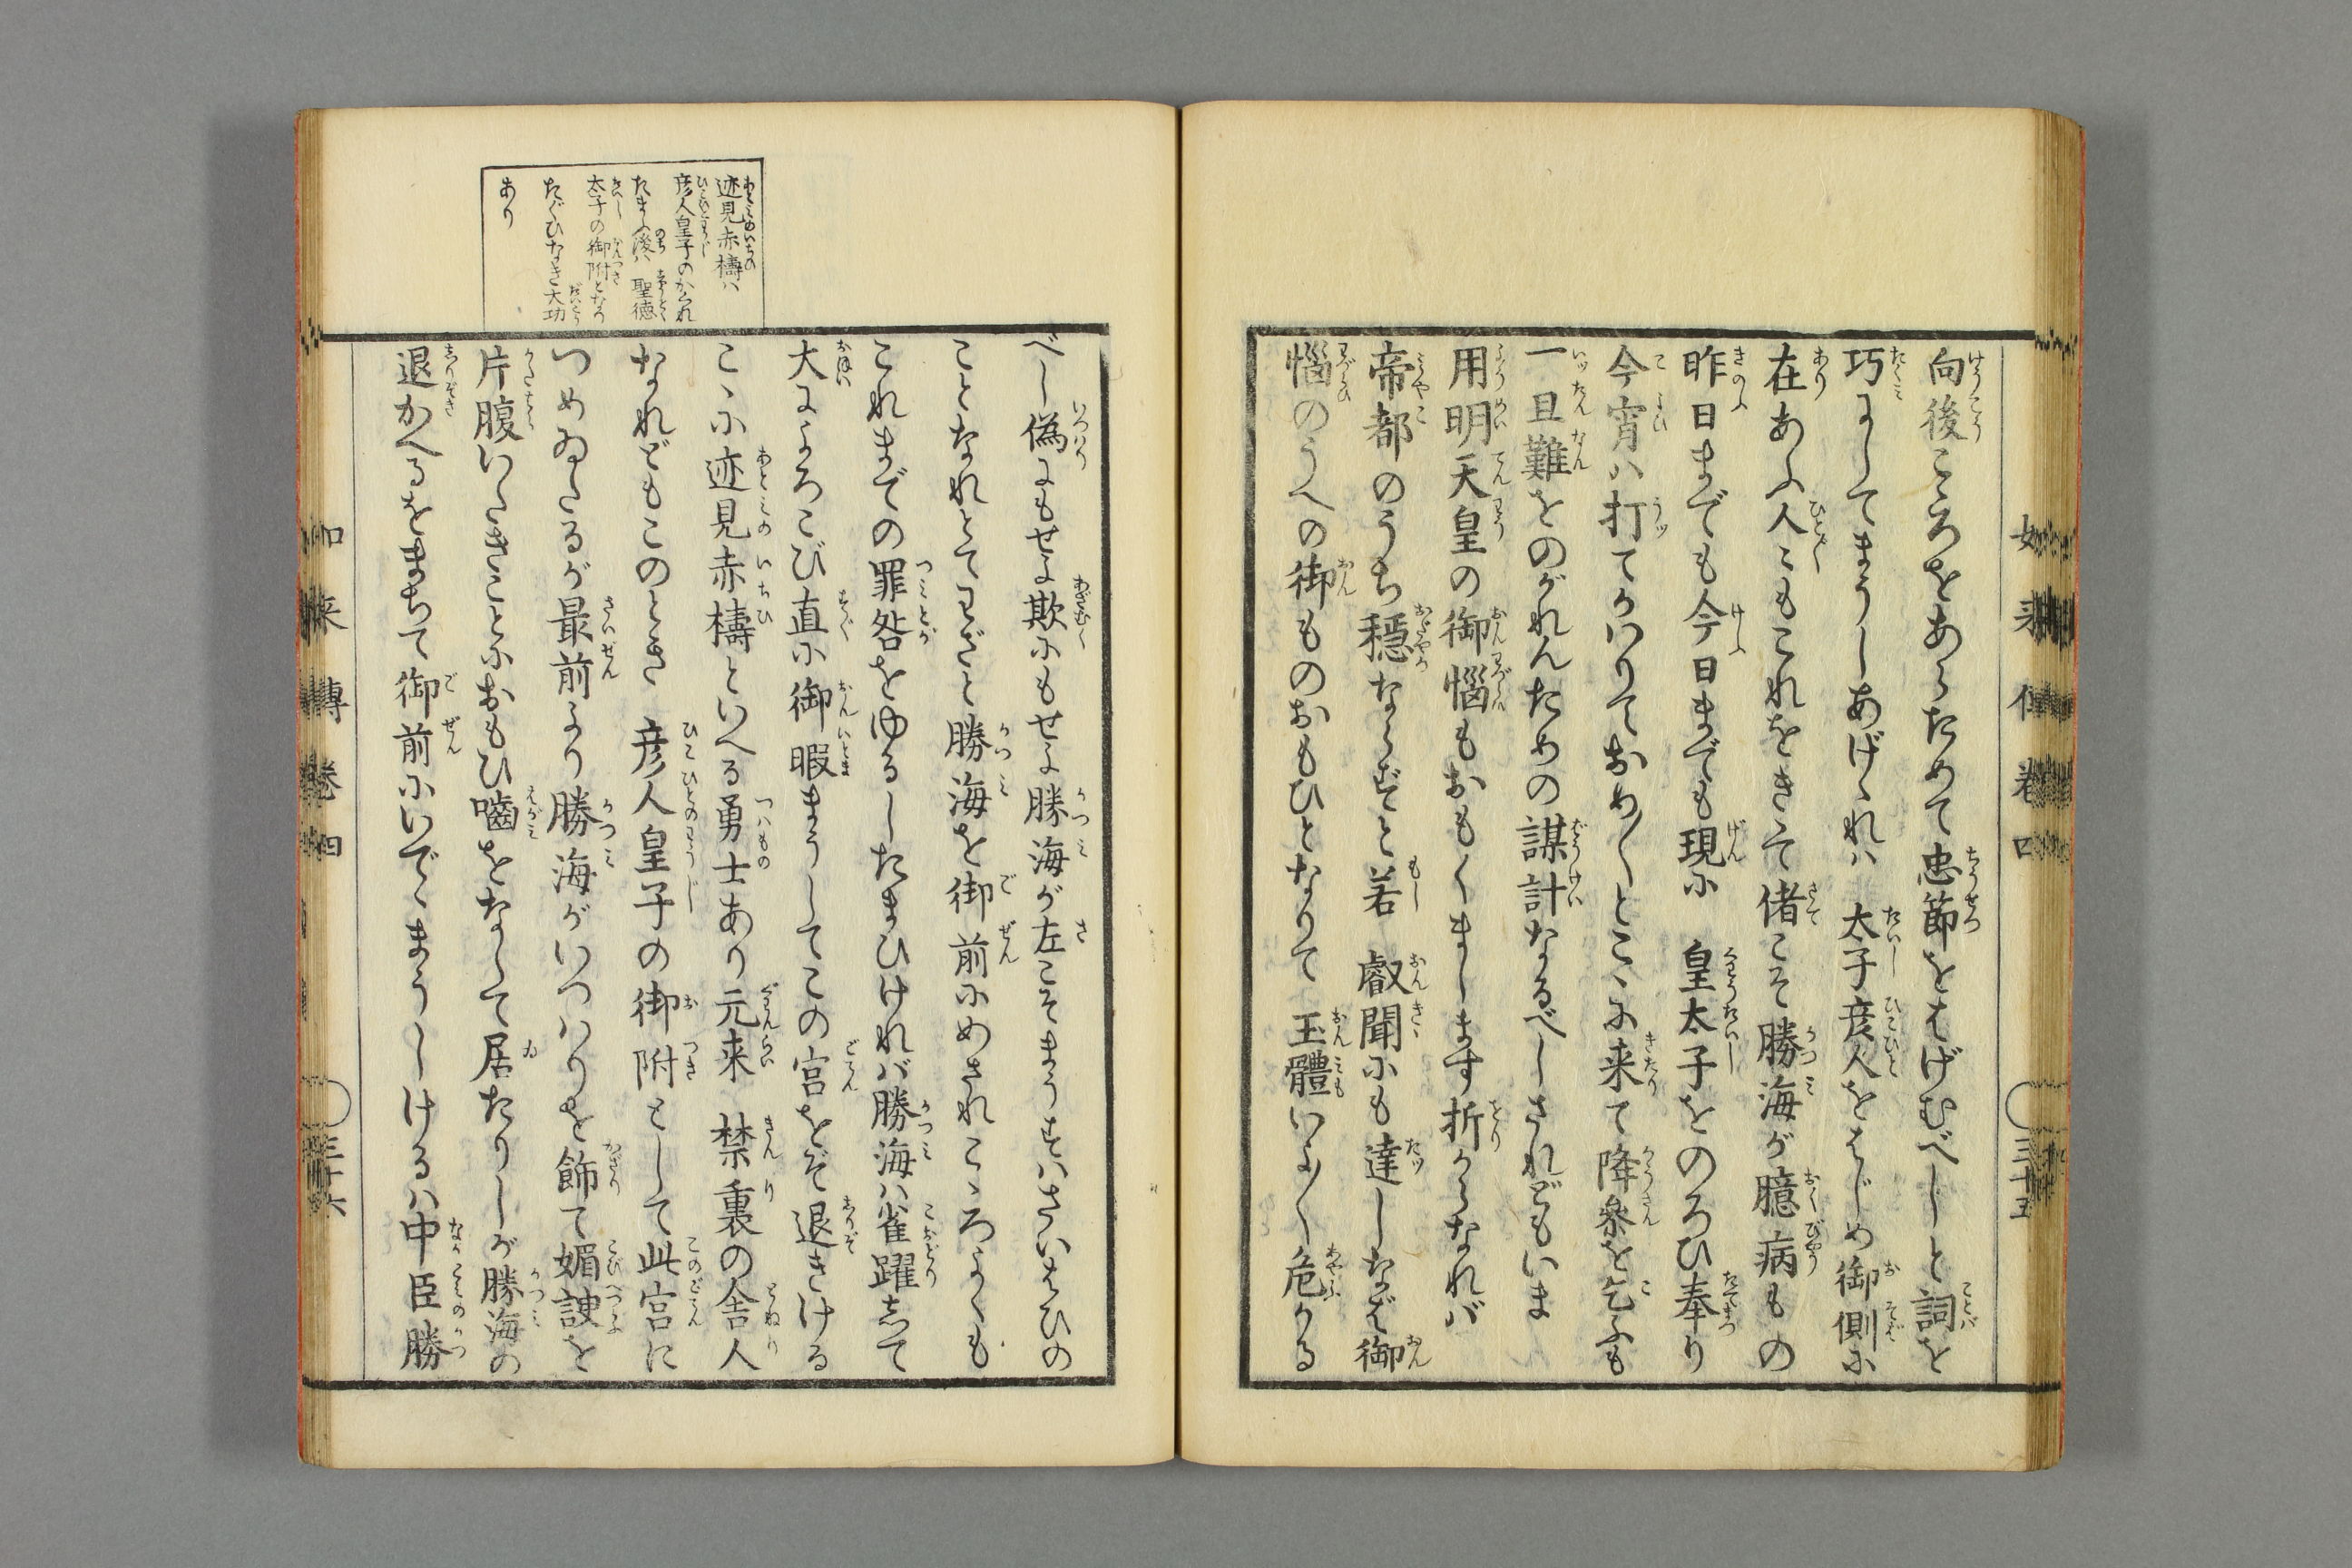 向後こゝろをあらためて忠節をはげむべしと詞を
巧にしてまうしあげゝれハ 太子彦人をはじめ御側に
在あふ人〻もこれをきゝて偖こそ勝海が臆病もの
昨日までも今日までも現に 皇太子をのろひ奉り
今宵ハ打てかハりておめ〳〵とこゝに来て降参を乞ふも
一旦難をのがれんための謀計なるべしされどもいま
用明天皇の御惱もおもくまします折からなれバ
帝都のうち穏ならずと若 叡聞にも達しなば御
惱のうへの御ものおもひとなりて 玉體いよ〳〵危かる
如来傳巻四
三十五
べし偽にもせよ欺にもせよ勝海が左こそまうすハさいはひの
ことなれとてわざと勝海を御前にめされこゝろよくも
これまでの罪咎をゆるしたまひけれバ勝海ハ雀躍して
大によろこび直に御暇まうしてこの宮をぞ退きける
こゝに迹見赤檮といへる勇士あり元来 禁裏の舎人
なれどもこのとき 彦人皇子の御附として此宮に
つめゐたるが最前より勝海がいつハりを飾て媚諛を
片腹いたきことにおもひ嚙をなして居たりしが勝海の
退かへるをまちて御前にいでゝまうしけるハ中臣勝
迹見赤檮ハ
彦人皇子のかくれ
たまふ後ハ 聖徳
太子の御附となり
たぐひなき大功
あり
如来傳巻四
三十六